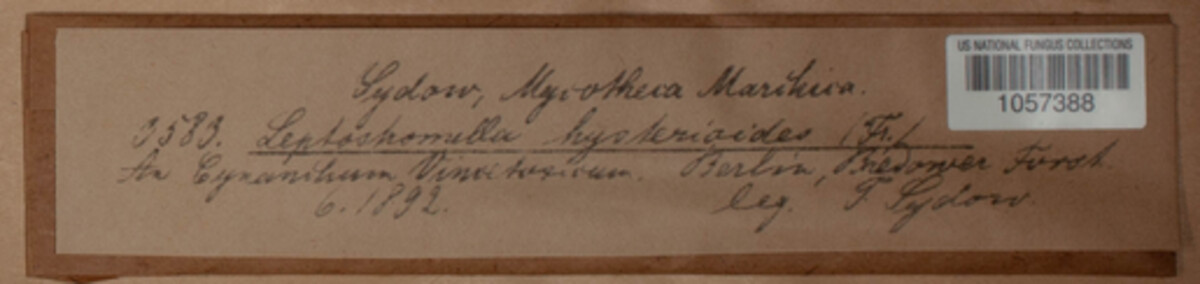 US NATIONAL FUNGUS COLLECTIONS
1057388
Sydow, Mycotheca Marchica.
3583. Leptostromella hysterioides (Fr.)
An Cynanchum Vincetoxicum. Berlin, Bredower Forst
6. 1892. leg. P. Sydow.